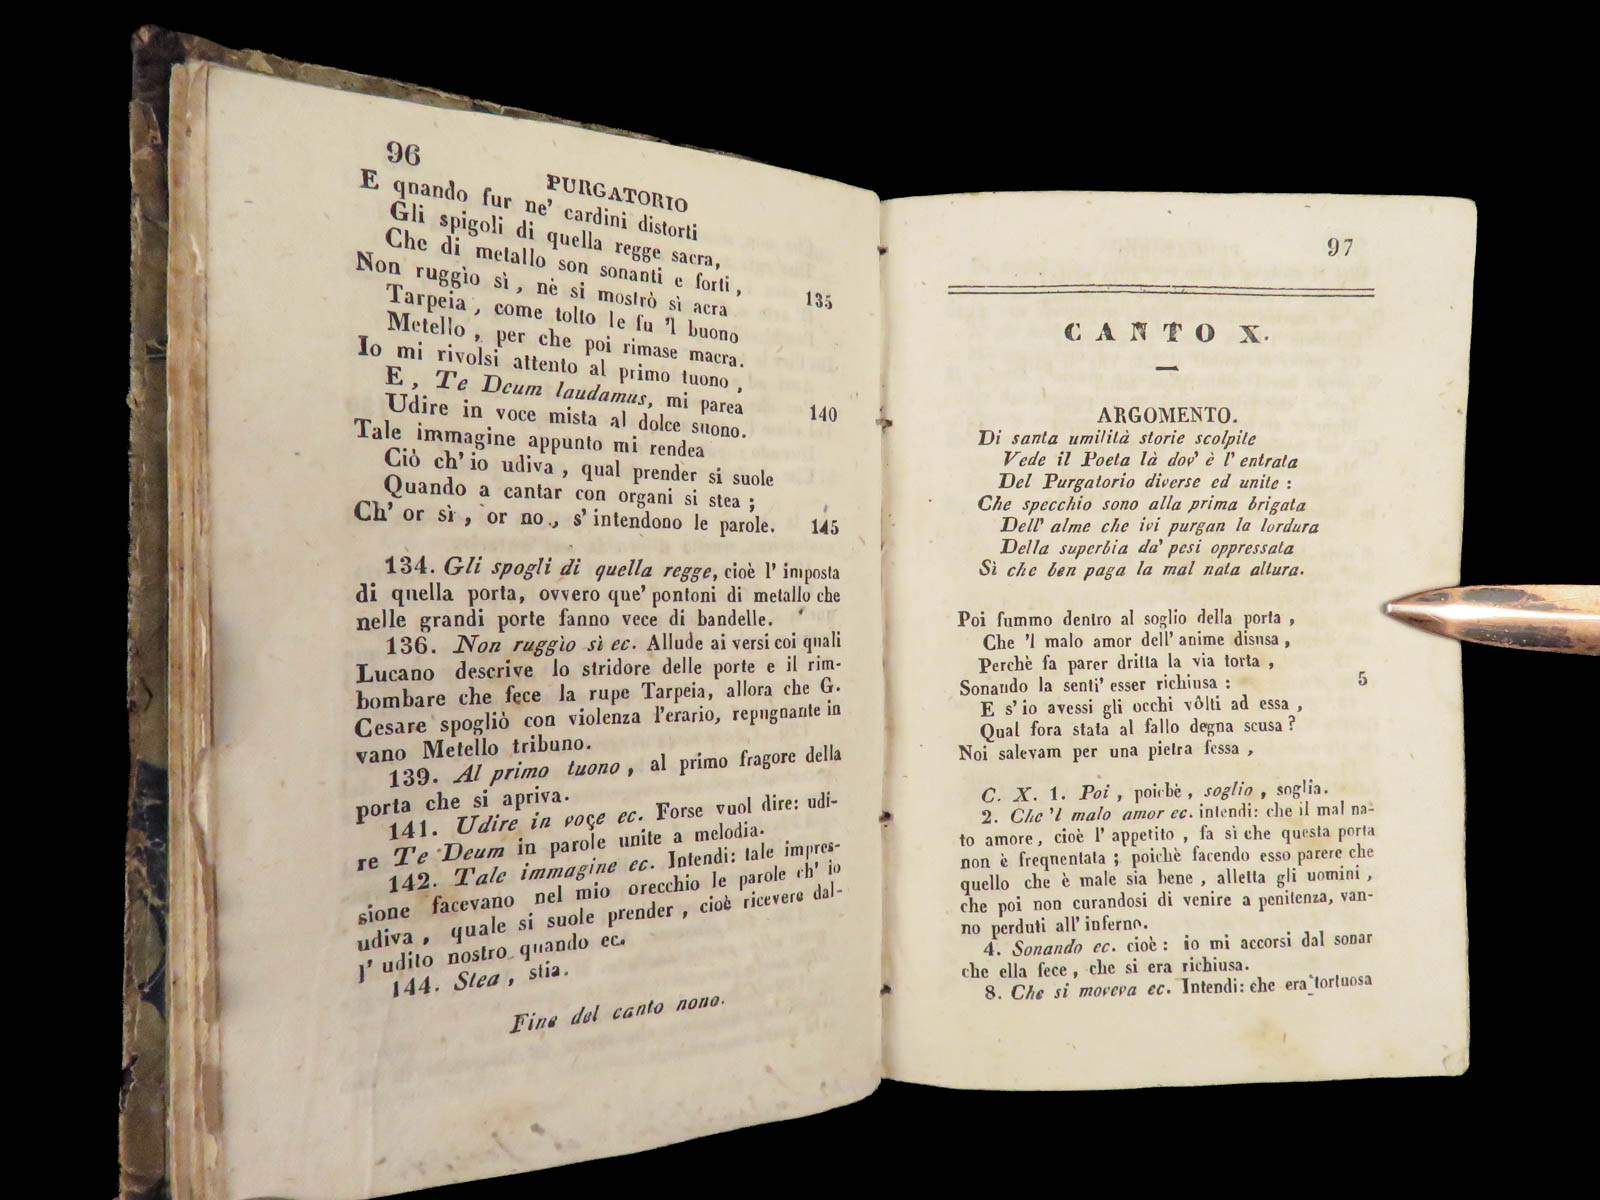 96
PURGATORIO
E qnando fur ne' cardini distorti
Gli spigoli di quella regge sacra,
Che di metallo son sonanti e forti,
Non ruggìo sì, nè si mostrò sì acra 135
Tarpeia, come tolto le fu 'l buono
Metello, per che poi rimase macra.
Io mi rivolsi attento al primo tuono,
E, Te Deum laudamus, mi parea
Udire in voce mista al dolce suono. 140
Tale immagine appunto mi rendea
Ciò ch' io udiva, qual prender si suole
Quando a cantar con organi si stea;
Ch' or sì, or no, s' intendono le parole. 145
134. Gli spogli di quella regge, cioè l' imposta
di quella porta, ovvero que' pontoni di metallo che
nelle grandi porte fanno vece di bandelle.
136. Non ruggìo sì ec. Allude ai versi coi quali
Lucano descrive lo stridore delle porte e il rim-
bombare che fece la rupe Tarpeia, allora che G.
Cesare spogliò con violenza l'erario, repugnante in
vano Metello tribuno.
139. Al primo tuono, al primo fragore della
porta che si apriva.
141. Udire in voce ec. Forse vuol dire: udi-
re Te Deum in parole unite a melodia.
142. Tale immagine ec. Intendi: tale impres-
sione facevano nel mio orecchio le parole ch' io
udiva, quale si suole prender, cioè ricevere dal-
l' udito nostro quando ec.
144. Stea, stia.
Fine del canto nono.
97
CANTO X.
ARGOMENTO.
Di santa umilità storie scolpite
Vede il Poeta là dov' è l' entrata
Del Purgatorio diverse ed unite:
Che specchio sono alla prima brigata
Dell' alme che ivi purgan la lordura
Della superbia da' pesi oppressata
Sì che ben paga la mal nata altura.
Poi fummo dentro al soglio della porta,
Che 'l malo amor dell' anime disusa,
Perchè fa parer dritta la via torta,
Sonando la senti' esser richiusa: 5
E s' io avessi gli occhi vôlti ad essa,
Qual fora stata al fallo degna scusa?
Noi salevam per una pietra fessa,
C. X. 1. Poi, poichè, soglio, soglia.
2. Che 'l malo amor ec. intendi: che il mal na-
to amore, cioè l' appetito, fa sì che questa porta
non è freqnentata; poichè facendo esso parere che
quello che è male sia bene, alletta gli uomini,
che poi non curandosi di venire a penitenza, van-
no perduti all' inferno.
4. Sonando ec. cioè: io mi accorsi dal sonar
che ella fece, che si era richiusa.
8. Che si moveva ec. Intendi: che era tortuosa